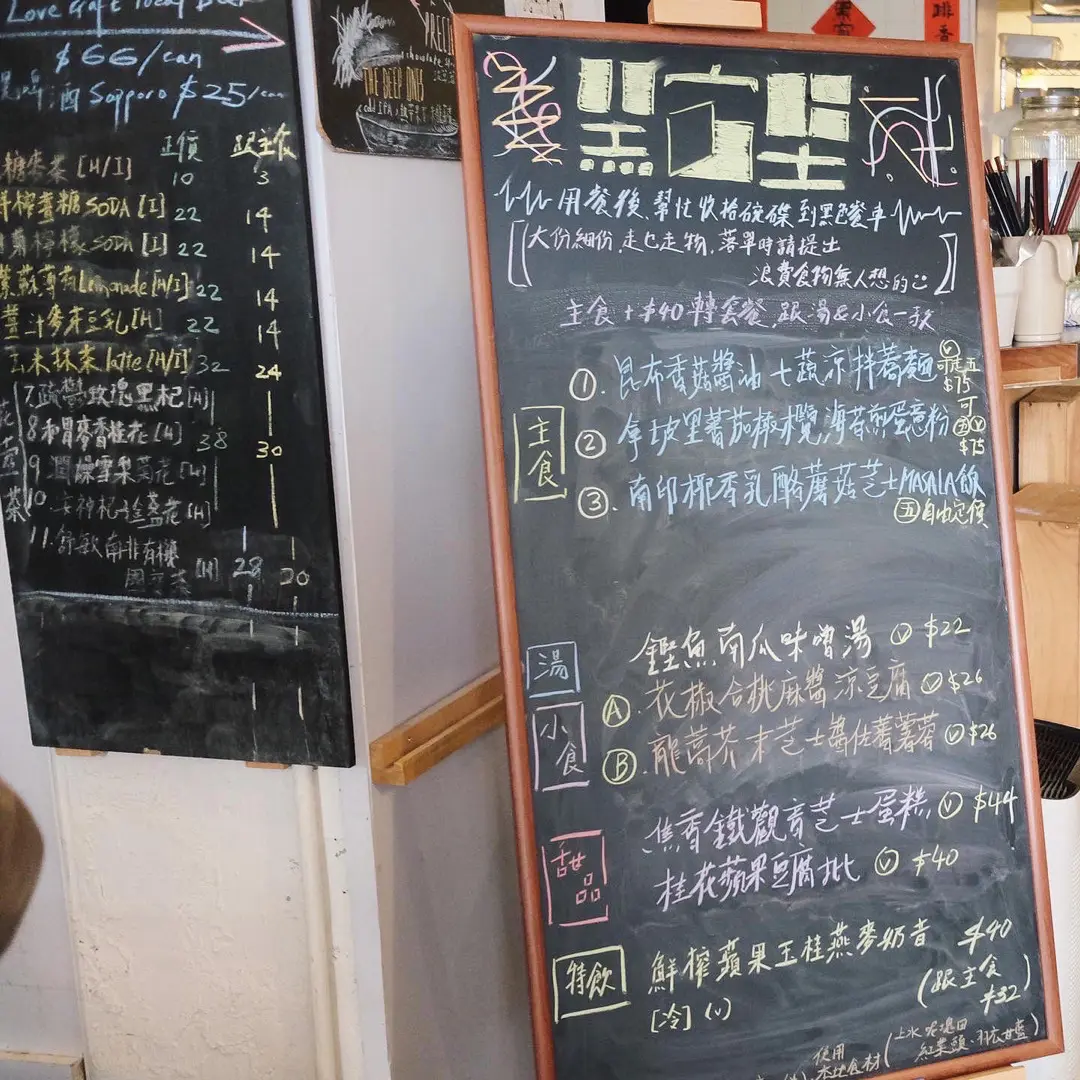 Love Craft Local Beer
$66/can
啤酒 Sapporo $25/can
正價 跟主食
[H/I] 10 3
SODA [I] 22 14
檸檬 SODA [I] 22 14
紫蘇葡萄 Lemonade [H/I] 22 14
豆乳 [H] 22 14
玉木抹茶 latte [H/I] 32 24
花茶
7. 玫瑰黑杞 [H]
8. 和胃麥香桂花 [H] 38 30
9. 潤燥雪梨菊花 [H]
10. 女神杞 盞花 [H]
11. 舒敏南非有機
國寶茶 [H] 28 20
THE DEEP ONES
點啱
用餐後,幫忙收拾碗碟到黑色餐車
大份細份,走乜走物,落單時請提出
浪費食物無人想的
主食+$40轉套餐,跟湯&小食一款
主食
①. 昆布香菇醬油七蔬涼拌蕎麵 Ⓥ 可走五 $75
② 拿坡里蕃茄橄欖海苔煎蛋意粉 可 Ⓥ $75
③. 南印椰香乳酪蘑菇芝士MASALA飯
五 自由定價
湯
鰹魚南瓜味噌湯 Ⓥ $22
小食
Ⓐ. 花椒合桃麻醬涼豆腐 Ⓥ $26
Ⓑ. 龍蒿芥末芝士醬佐蕃薯蓉 Ⓥ $26
甜品
焦香鐵觀音芝士蛋糕 Ⓥ $44
桂花蘋果豆腐批 Ⓥ $40
特飲
鮮榨蘋果玉桂燕麥奶昔 $40
[冷] (V) (跟主食 $32)
使用本地食材 (上水 紅菜頭、羽衣甘藍)